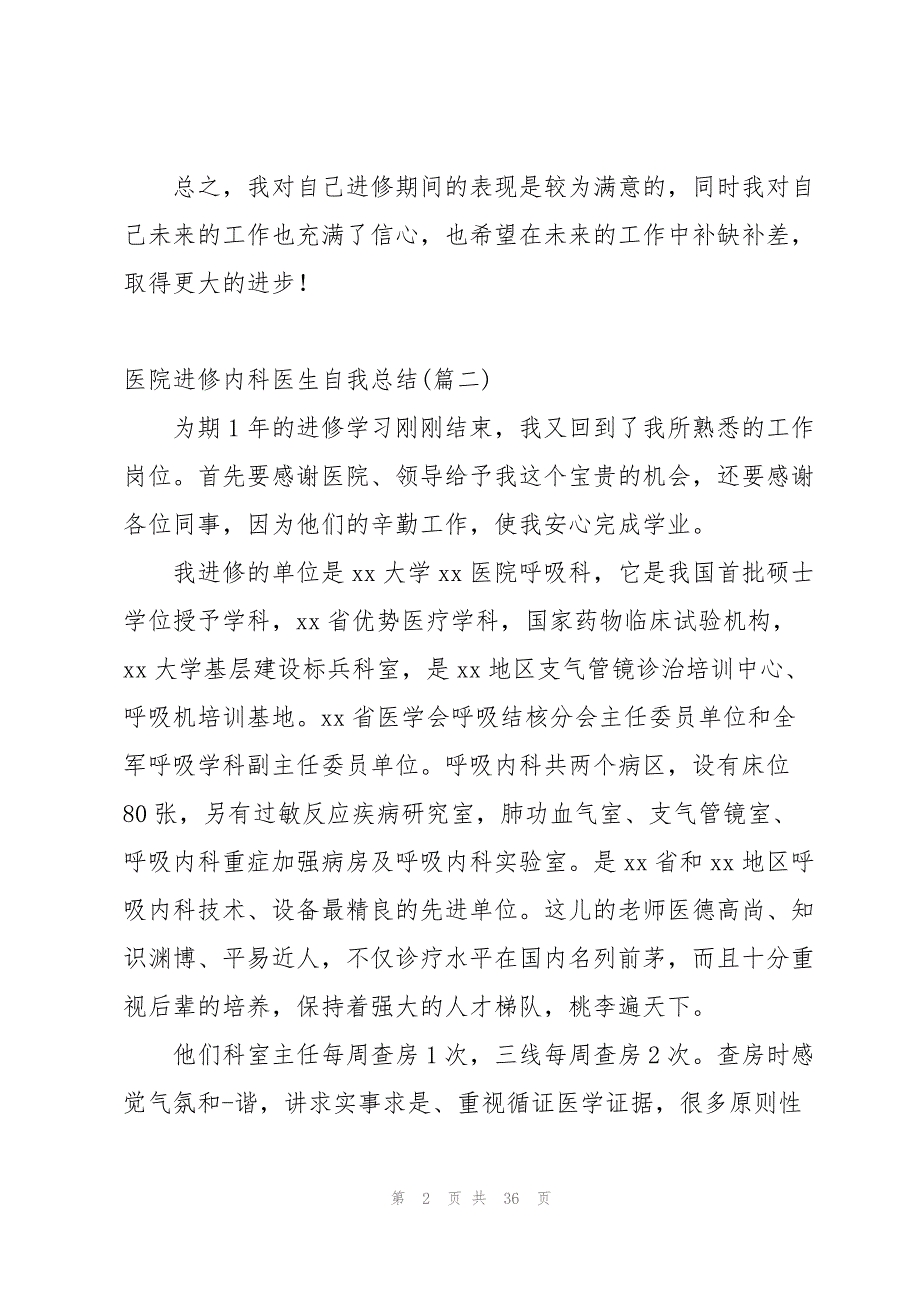 总之，我对自己进修期间的表现是较为满意的，同时我对自
己未来的工作也充满了信心，也希望在未来的工作中补缺补差，
取得更大的进步！
医院进修内科医生自我总结(篇二)
为期 1 年的进修学习刚刚结束，我又回到了我所熟悉的工作
岗位。首先要感谢医院、领导给予我这个宝贵的机会，还要感谢
各位同事，因为他们的辛勤工作，使我安心完成学业。
我进修的单位是 xx 大学 xx 医院呼吸科，它是我国首批硕士
学位授予学科，xx 省优势医疗学科，国家药物临床试验机构，
xx 大学基层建设标兵科室，是 xx 地区支气管镜诊治培训中心、
呼吸机培训基地。xx 省医学会呼吸结核分会主任委员单位和全
军呼吸学科副主任委员单位。呼吸内科共两个病区，设有床位
80 张，另有过敏反应疾病研究室，肺功血气室、支气管镜室、
呼吸内科重症加强病房及呼吸内科实验室。是 xx 省和 xx 地区呼
吸内科技术、设备最精良的先进单位。这儿的老师医德高尚、知
识渊博、平易近人，不仅诊疗水平在国内名列前茅，而且十分重
视后辈的培养，保持着强大的人才梯队，桃李遍天下。
他们科室主任每周查房 1 次，三线每周查房 2 次。查房时感
觉气氛和-谐，讲求实事求是、重视循证医学证据，很多原则性
第 2 页 共 36 页